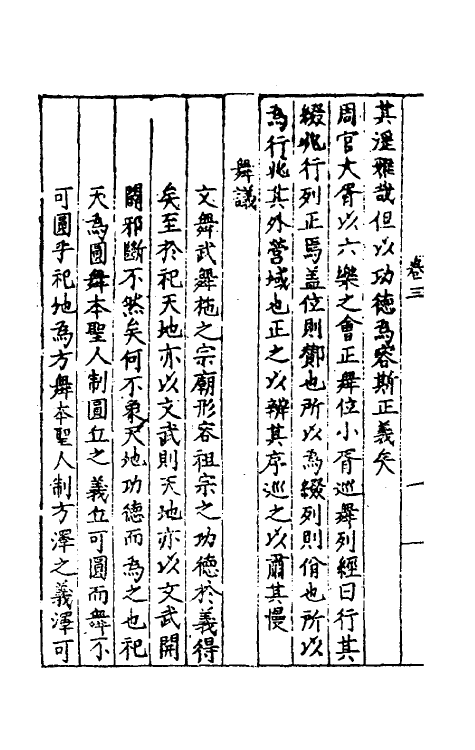 卷三
其淫雅哉但以功德為容斯正義矣
周官大胥以六樂之會正舞位小胥巡舞列經曰行其
綴兆行列正焉蓋位則酇也所以為綴列則佾也所以
為行兆其外營域也正之以辨其序巡之以肅其慢
舞議
文舞武舞施之宗廟形容祖宗之功德於義得
矣至於祀天地亦以文武則天地亦以文武開
闢邪斷不然矣何不象天地功德而為之也祀
天為圓舞本聖人制圓丘之義丘可圓而舞不
可圓乎祀地為方舞本聖人制方澤之義澤可